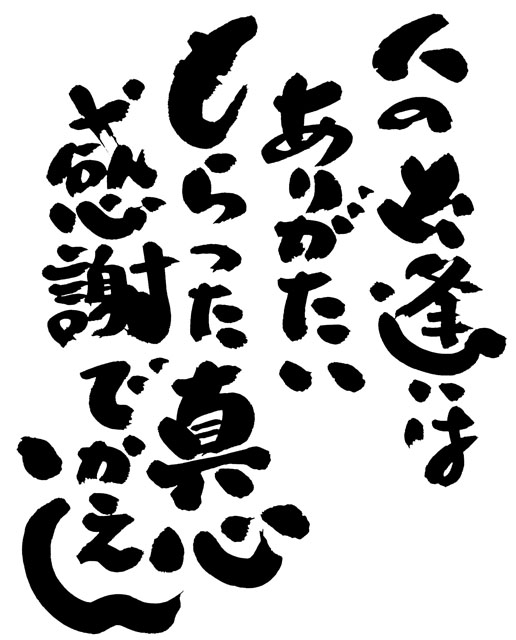 人の出逢いは
ありがたい
もらった真心
感謝でがえし